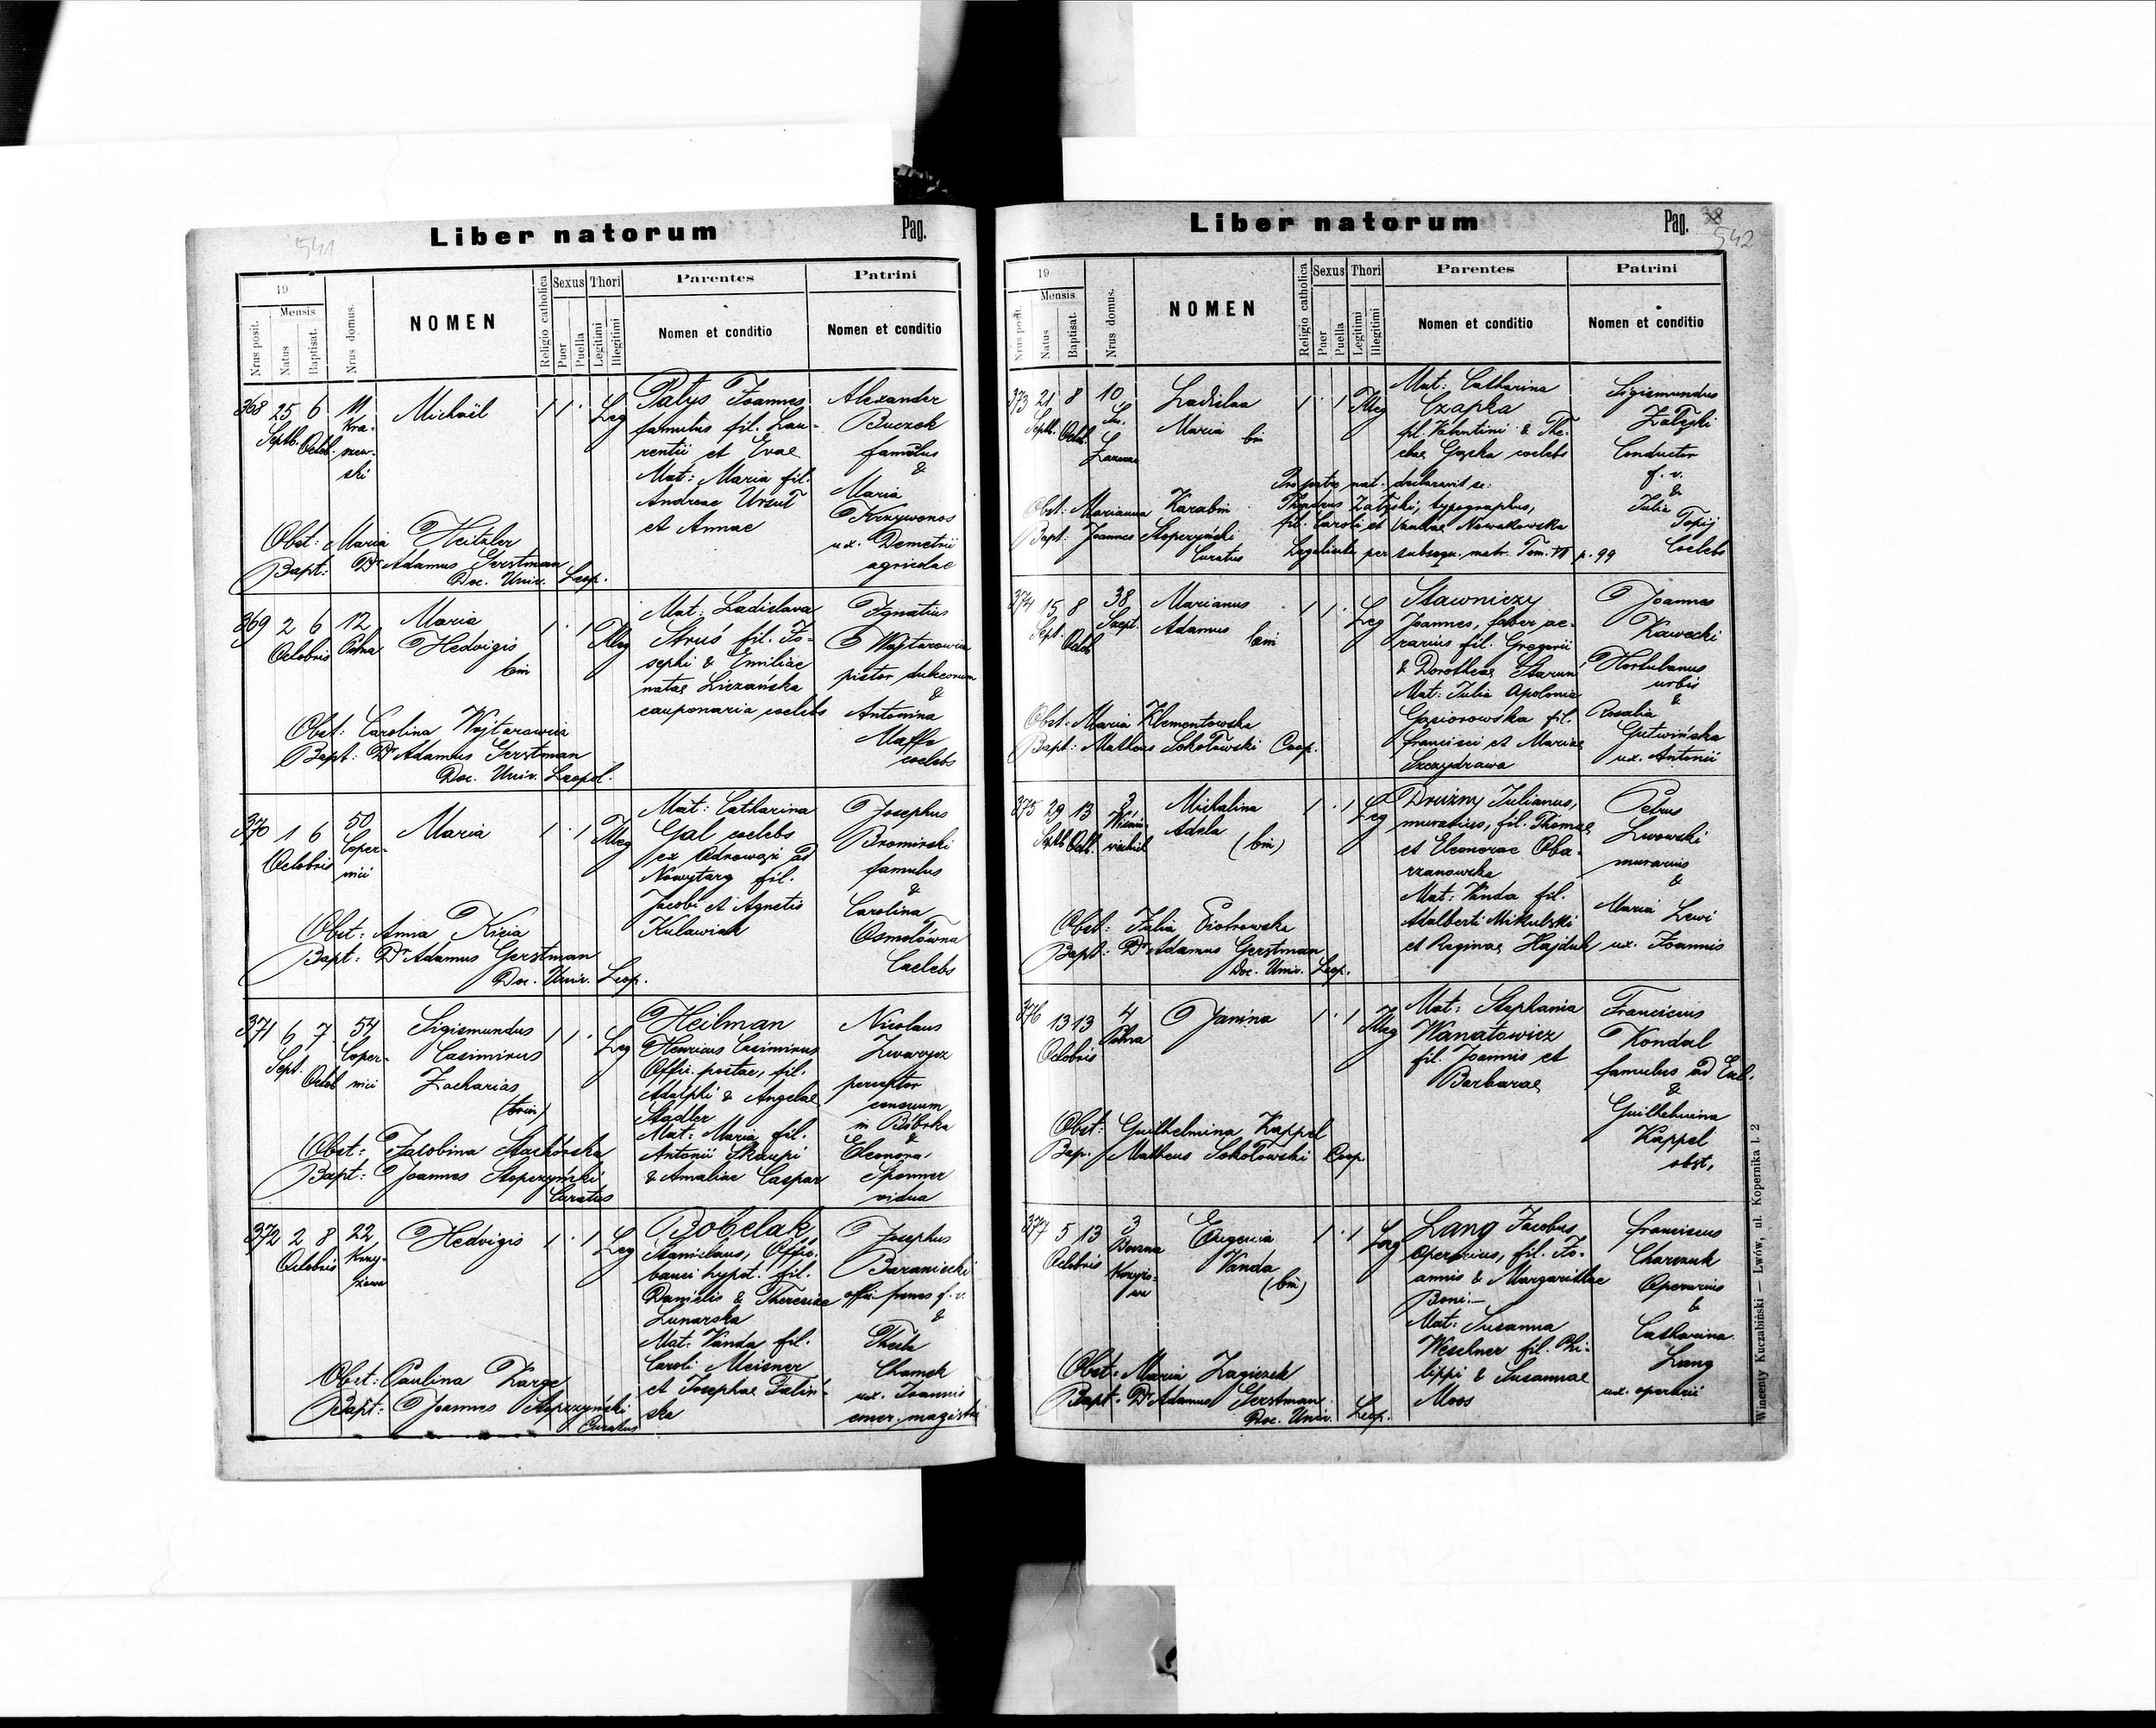 541
Liber natorum
Pag.
19
Mensis
Nrus posit.
Natus
Baptisat.
Nrus domus.
NOMEN
Religio catholica
Sexus
Puer
Puella
Thori
Legitimi
Illegitimi
Parentes
Nomen et conditio
Patrini
Nomen et conditio
368 25 6 11
Septb. Octob. Kra-
szew-
ski
Michaël
1 1 · Leg
Patys Joannes
famulus fil. Lau-
rentii et Evae
Mat: Maria fil.
Andreae Ursuł
et Annae
Alexander
Buczek
famulus
&
Maria
Krzywonos
ux. Demetrii
agricolae
Obst: Maria Heitzler
Bapt: Dr Adamus Gerstman
Doc. Univ. Leop.
369 2 6 12
Octobris Petra
Maria
Hedvigis
bin
1 · 1 Illeg
Mat: Ladislava
Struś fil. Jo-
sephi & Emiliae
natae Liczańska
cauponaria coelebs
Ignatius
Wojtarowicz
pistor dulceorum
&
Antonina
Maffo
coelebs
Obst: Carolina Wojtarowicz
Bapt: Dr Adamus Gerstman
Doc. Univ. Leopol.
370 1 6 50
Octobris Coper-
nici
Maria
1 · 1 Illeg
Mat: Catharina
Gal coelebs
ex Odrowąż ad
Nowytarg fil.
Jacobi et Agnetis
Kulawiak
Josephus
Bromirski
famulus
&
Carolina
Osmołówna
Coelebs
Obst: Anna Kicia
Bapt: Dr Adamus Gerstman
Doc. Univ. Leop.
371 6 7 54
Sept. Octob. Coper-
nici
Sigismundus
Casimirus
Zacharias
(trin)
1 1 · Leg
Heilman
Henricus Casimirus
Offic. postae, fil.
Adolphi & Angelae
Stadler
Mat: Maria fil.
Antonii Skaupi
& Amaliae Caspar
Nicolaus
Zwarycz
perceptor
censuum
in Bóbrka
&
Eleonora
Sponner
vidua
Obst: Jacobina Stachórska
Bapt: Joannes Stopczyński
Curatus
372 2 8 22
Octobris Krzy-
żowa
Hedvigis
1 · 1 Leg
Bobelak
Stanislaus, Offic.
banci hypot. fil.
Danielis & Theresiae
Lunarska
Mat: Vanda fil.
Caroli Meisner
et Josephae Faliń-
ska
Josephus
Baraniecki
offic. penes f. v.
&
Thecla
Chamek
ux. Joannis
emer. magistri
Obst: Paulina Karge
Bapt: Joannes Stopczyński
Curatus
38
542
Liber natorum
Pag.
19
Mensis
Nrus posit.
Natus
Baptisat.
Nrus domus.
NOMEN
Religio catholica
Sexus
Puer
Puella
Thori
Legitimi
Illegitimi
Parentes
Nomen et conditio
Patrini
Nomen et conditio
373 21 8 10
Septb. Octob. Św.
Łazarza
Ladislaa
Maria bin
1 · 1 Illeg
Mat: Catharina
Czapka
fil. Valentini & The-
clae Gąska coelebs
Pro patre nat. declaravit se:
Theodorus Załęski, typographus,
fil. Caroli et Vandae Nowakowska
Legalisata per subsequ. matr. Tom. VII p. 99
Sigismundus
Załęski
Conductor
f. v.
&
Julia
Topij
Coelebs
Obst: Marianna Karabin
Bapt: Joannes Stopczyński
Curatus
374 15 8 38
Sept. Octob. Szept.
Marianus
Adamus bin
1 1 · Leg
Stawniczy
Joannes, faber ae-
rarius fil. Gregorii
& Dorotheae Starun
Mat: Julia Apolonia
Gąsiorowska fil.
Francisci et Mariae
Szczydrawa
Joannes
Kawecki
Hortulanus
urbis
&
Rosalia
Gutwińska
ux. Antonii
Obst: Maria Klemontowska
Bapt: Matheus Sokołowski Coop.
375 29 13 3
Septb. Octb. Wiśnio-
wieckich
Michalina
Adela
(bin)
1 · 1 Leg
Drużny Julianus,
murarius, fil. Thomae
et Eleonorae Oba-
rzanowska
Mat: Vanda fil.
Adalberti Mikulski
et Reginae Hajduk
Petrus
Lwowski
murarius
&
Maria Lewi
ux. Joannis
Obst: Julia Piotrowska
Bapt: Dr Adamus Gerstman
Doc. Univ. Leop.
376 13 13 4
Octobris Petra
Janina
1 · 1 Illeg
Mat: Stephania
Wanatowicz
fil. Joannis et
Barbarae
Franciscus
Kondal
famulus ad Eccl.
&
Guilhelmina
Kappel
obst.
Obst: Guilhelmina Kappel
Bap. Matheus Sokołowski Coop.
377 5 13 3
Octobris Boczna
Krzyżo-
wa
Eugenia
Vanda
(bin)
1 · 1 Leg
Lang Jacobus
operarius, fil. Jo-
annis & Margarithae
Boni.-
Mat: Susanna
Weschner fil. Phi-
lippi & Susannae
Moos
Franciscus
Charczuk
Operarius
&
Catharina
Lang
ux. operarii
Obst: Maria Zagiczek
Bapt: Dr Adamus Gerstman
Doc. Univ. Leop.
Wincenty Kuczabiński — Lwów, ul. Kopernika l. 2